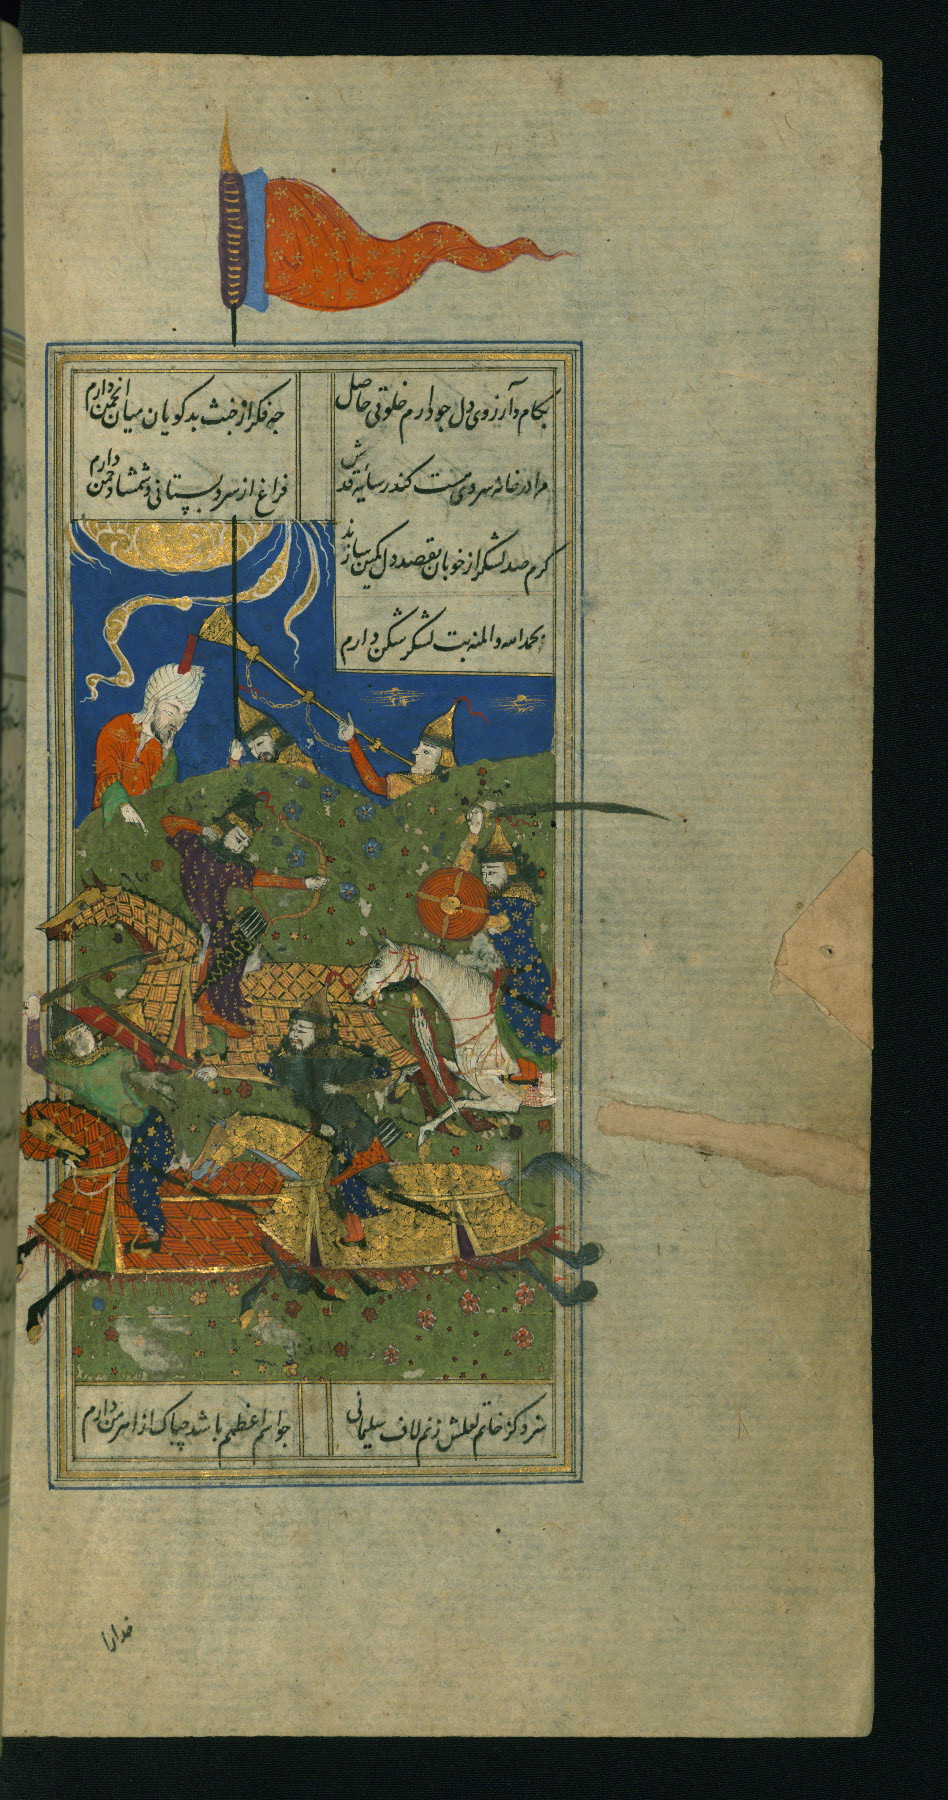 بکام و آرزوی دل جو دارم خلوتی حاصل
جه فکر از خبث بدکویان میان انجمن دارم
مرا در خانه سروی هست کندر سایهٔ قدش
فراغ از سرو بستانی و شمشاد چمن دارم
کرم صد لشکر از خوبان بقصد دل کمین سازند
بحمد الله و المنه بت لشکر شکن دارم
سزد کز خاتم لعلش زنم لاف سلیمانی
جو اسم اعظمم باشد چه باک از اهرمن دارم
خدارا